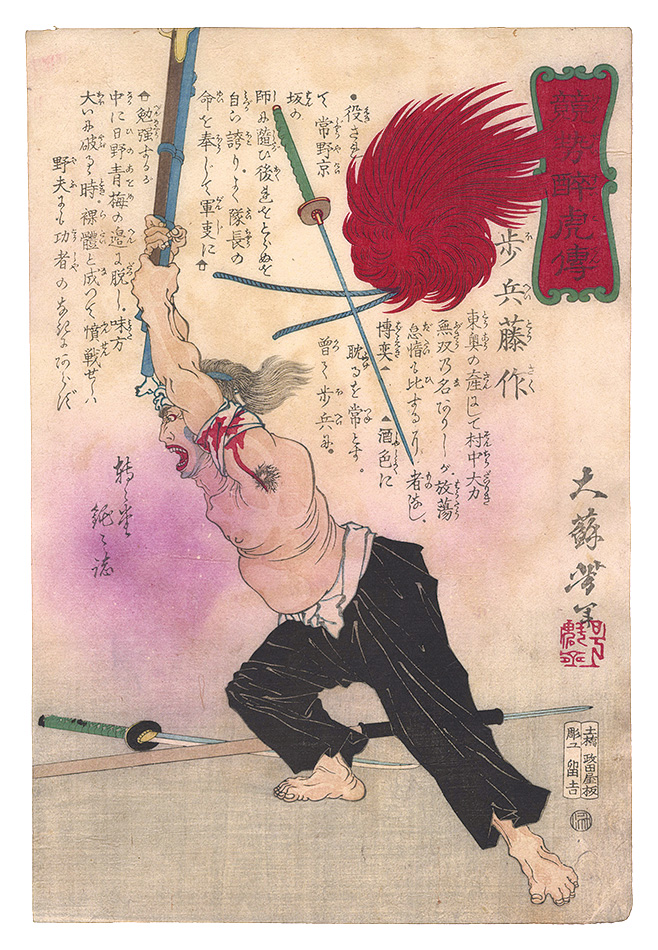 競勢醉虎傳
歩兵藤作
東奥の産にして村中大力
無双乃名ありしが放蕩
怠惰に比する者なし。
博奕▲▲酒色に
耽るを常とす。
曽て歩兵に。
●役されて常野京
坂の
師に随ひ後れをとらぬを
自ら誇りよく隊長の
命を奉じて軍事に
勉強するが
中に日野青梅の邉に脱し味方
大いに破るゝ時裸體と成つて憤戦せしハ
野夫にも功者のなきにあらず
轉々堂
鈍々誌
大蘇芳年
土橋 政田屋板
彫工 留吉